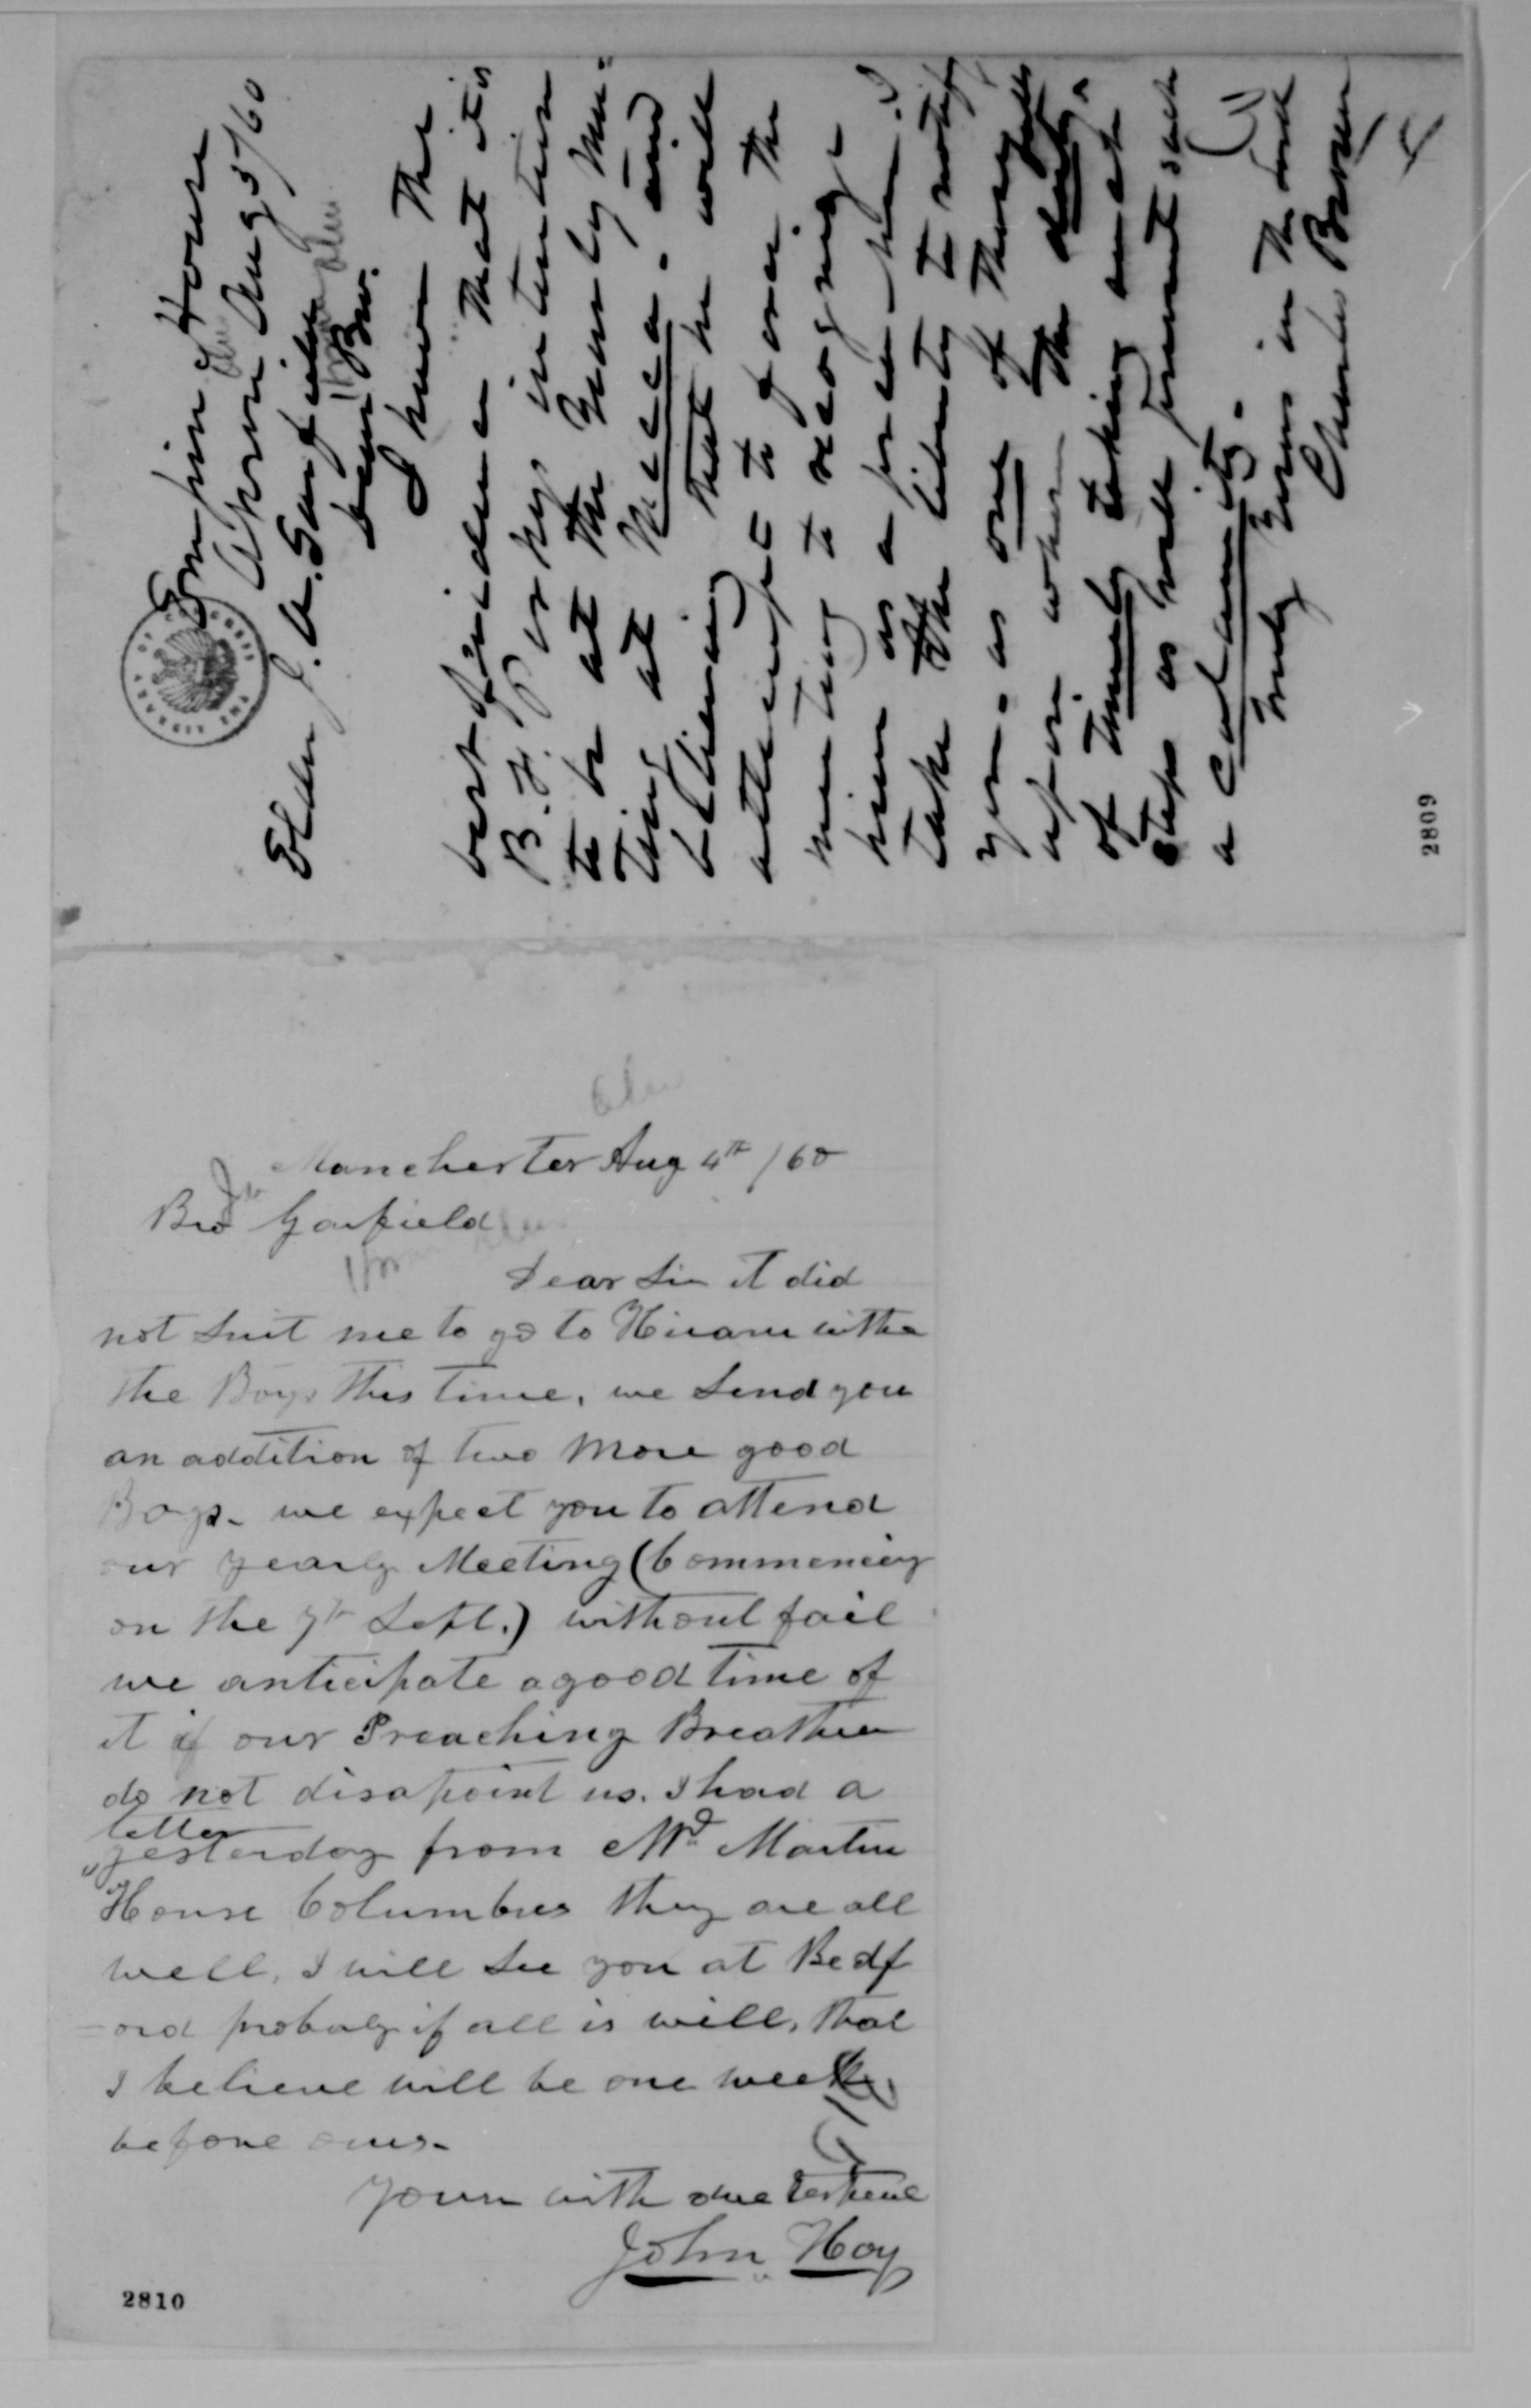 Empire House
Akron Aug 5/60
Elder J. A. Garfield
Dear Bro.
I have the
best evidence that it is
B. F. Perky's intention
to be at the Yearly Mee-
ting at Mecca. and
believing that he will
attempt to force the
meeting to recognize
him as a preacher. I
take the liberty to notify
you. as one of those
upon whom the duty
of timely taking such
steps as will prevent such
a calamity.
Truly Yours in the Lord
Charles Brown
2809
Manchester Aug 4th /60
Bro Garfield
Dear Sir it did
not suit me to go to Hiram with
the Boys this time, we send you
an addition of two more good
Boys. we expect you to attend
our yearly Meeting (Commencing
on the 7th Sept.) without fail
we anticipate a good time of
it if our Preaching Breathren
do not disapoint us. I had a
letter
yesterday from Martin
House Columbus they are all
well, I will see you at Bedf
=ord probaly if all is well, that
I believe will be one week
before ours.
Yours with due
John Hoy
2810